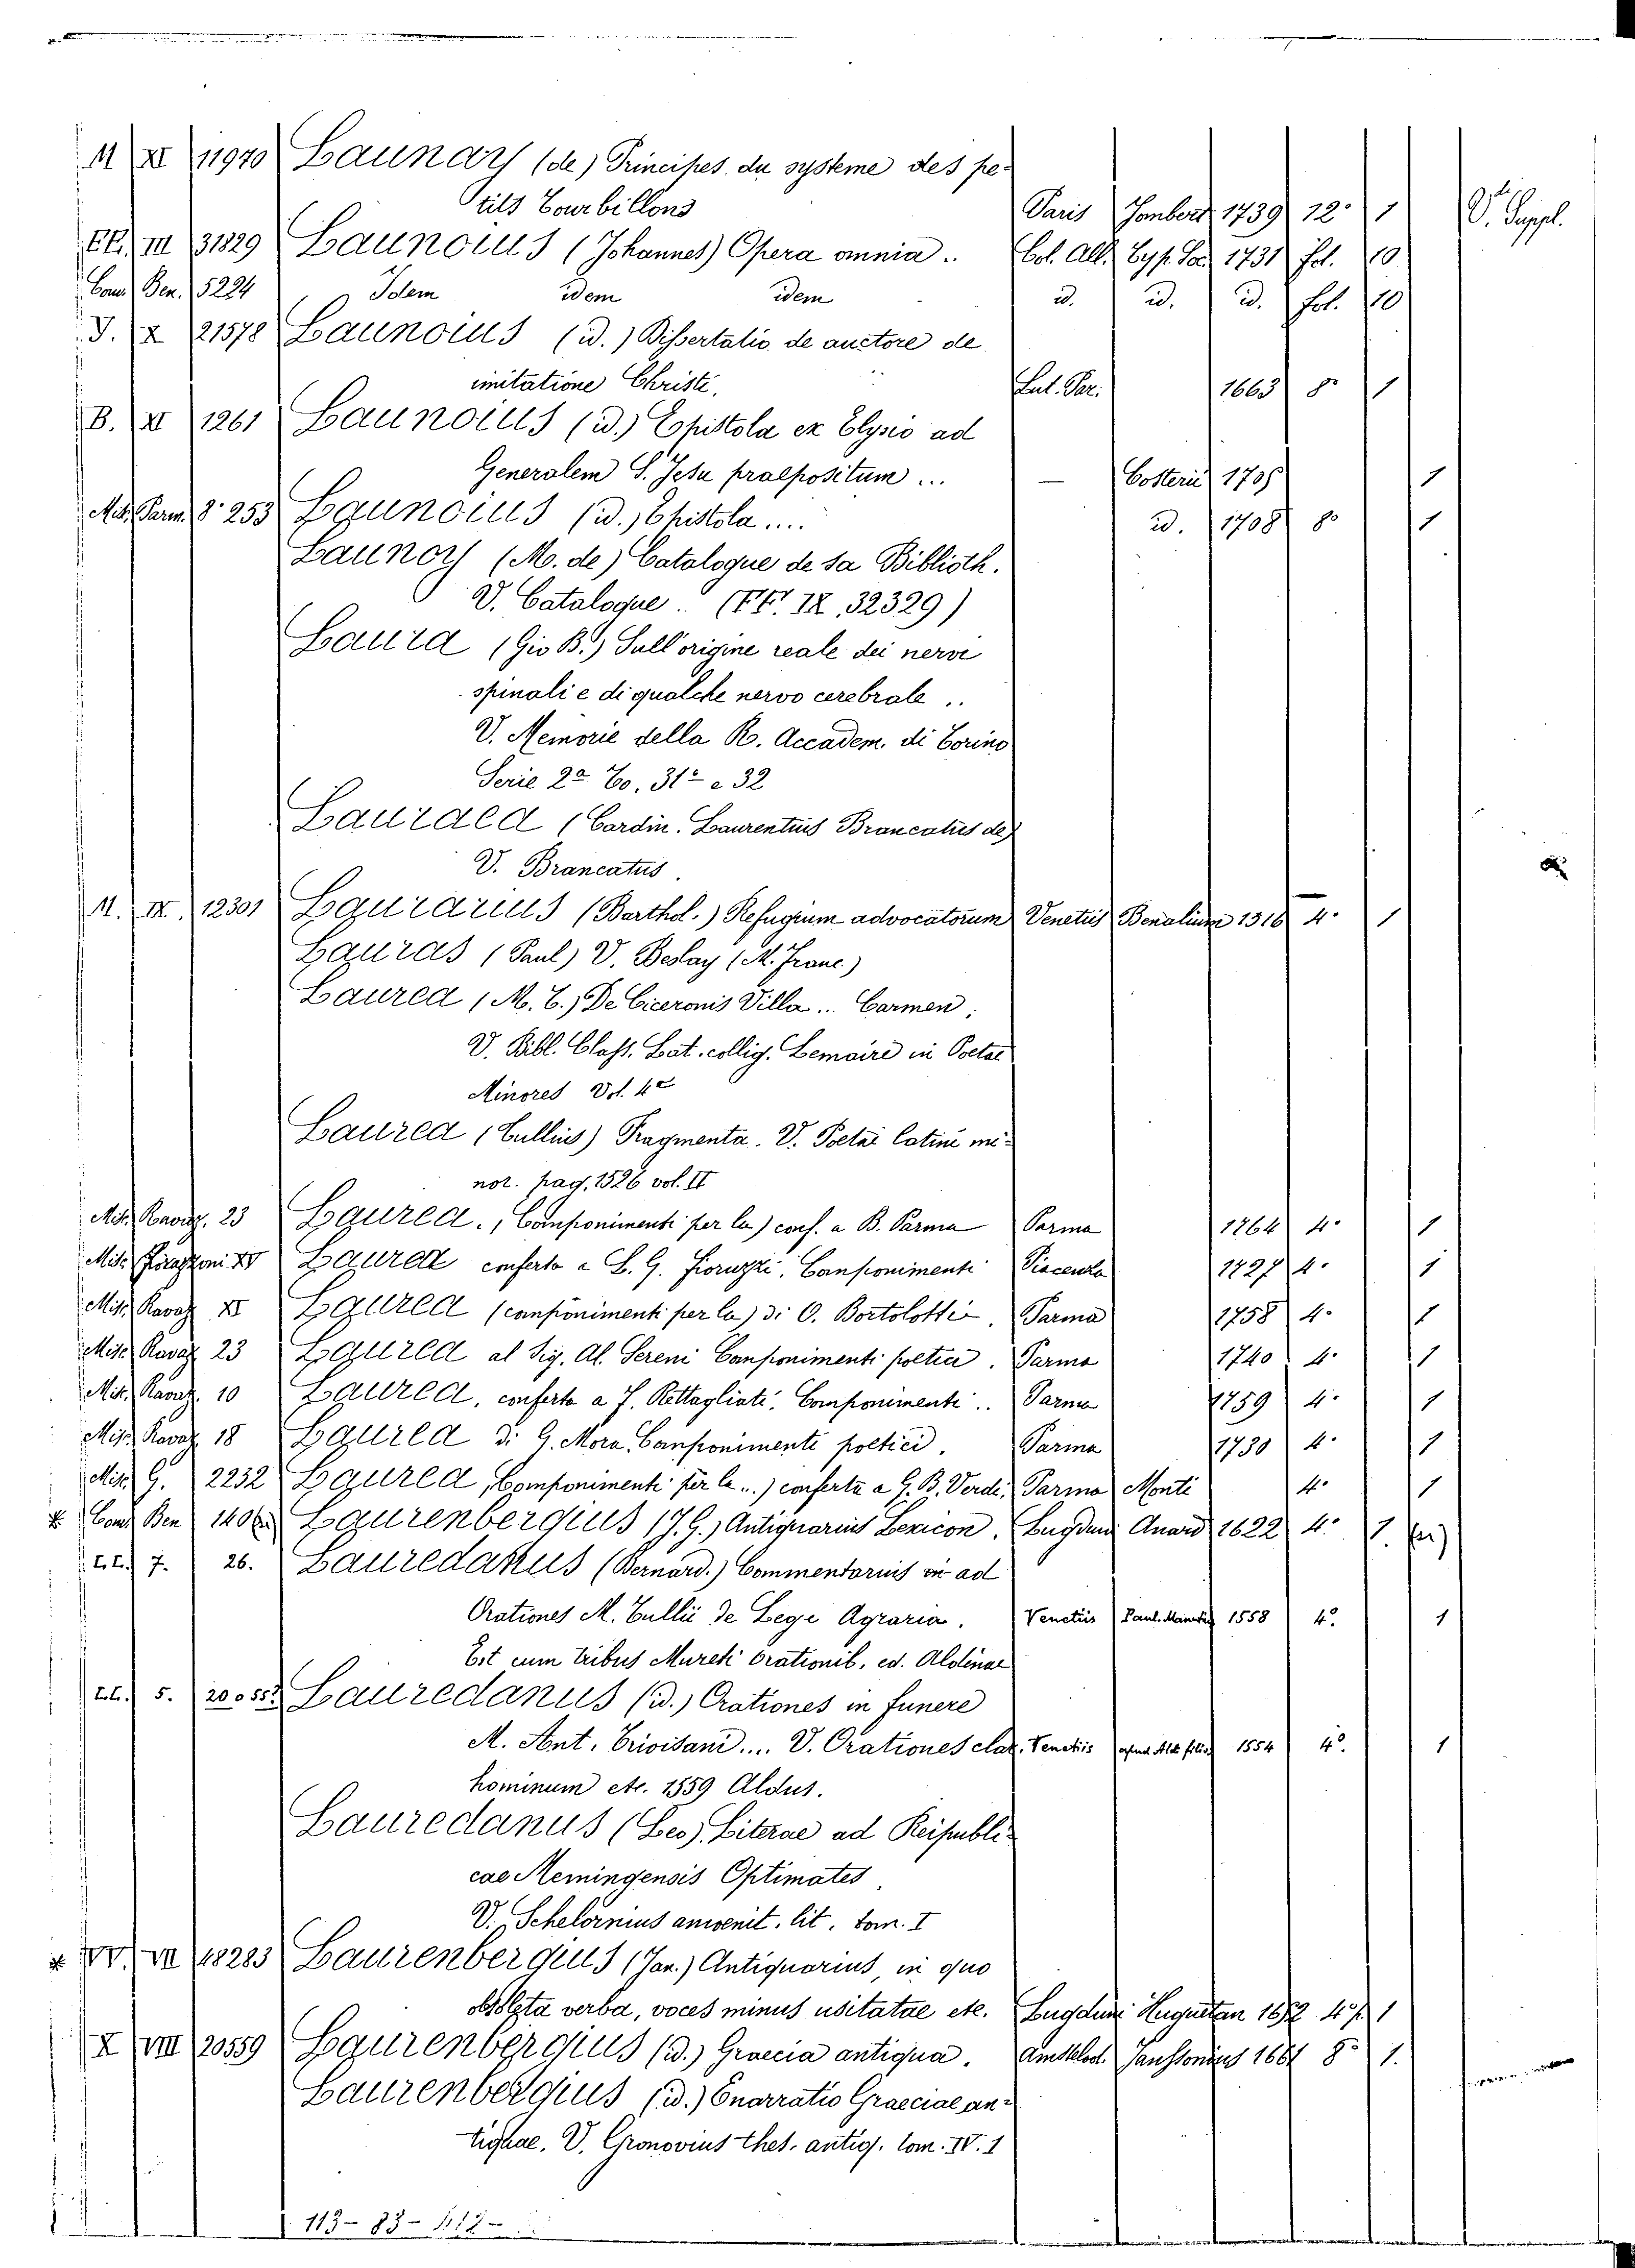 M XI 11970 Launay (de) Principes du systeme des pe-
tits Tourbillons Paris Jombert 1739 12° 1 V. Suppl.
EE. III 31829 Launoius (Johannes) Opera omnia .. Col. All. Typ. Soc. 1731 fol. 10
Com. Ben. 5224 Idem idem idem id. id. id. fol. 10
J. X 21578 Launoius (id.) Dissertatio de auctore de
imitatione Christi. Lut. Par. 1663 8° 1
B. XI 1261 Launoius (id.) Epistola ex Elysio ad
Generalem S. Jesu praepositum ... — Costerii 1705 1
Mis. Parm. 8° 253 Launoius (id.) Epistola .... id. 1708 8° 1
Launoy (M. de) Catalogue de sa Biblioth.
V. Catalogue .. (FF. IX. 32329)
Laura (Gio B.) Sull'origine reale dei nervi
spinali e di qualche nervo cerebrale ..
V. Memorie della R. Accadem. di Torino
Serie 2a To. 31° e 32
Lauraea (Cardin. Laurentius Brancatus de)
V. Brancatus.
M. IX. 12301 Laurarius (Barthol.) Refugium advocatorum Venetiis Benalium 1516 4° 1
Lauras (Paul) V. Beslay (M. Franc.)
Laurea (M. T.) De Ciceronis Villa ... Carmen.
V. Bibl. Class. Lat. collig. Lemaire in Poetae
Minores Vol. 4°
Laurea (Tullius) Fragmenta. V. Poetae latini mi-
nor. pag. 1526 vol. II
Mis. Ravaz. 23 Laurea. (Componimenti per la) conf. a B. Parma Parma 1764 4° 1
Mis. XV Laurea conferta a L. G. Fioruzzi. Componimenti Piacenza 1727 4° 1
Mis. Ravaz. XI Laurea (componimenti per la) di O. Bortolotti. Parma 1758 4° 1
Mis. Ravaz. 23 Laurea al Sig. Al. Sereni Componimenti poetici. Parma 1740 4° 1
Mis. Ravaz. 10 Laurea, conferta a F. Rettagliati. Componimenti .. Parma 1759 4° 1
Mis. Ravaz. 18 Laurea di G. Mora, Componimenti poetici. Parma 1730 4° 1
Mis. G. 2232 Laurea, Componimenti per la ...) conferta a G. B. Verdi. Parma Monti 4° 1
* Com. Ben 1406 Laurenbergius (J. G.) Antiquarius Lexicon. Lugduni Anard 1622 4° 1.
L. L. 7. 26. Lauredanus (Bernard.) Commentarius in ad
Orationes M. Tullii de Lege Agraria. Venetiis Paul. Manutius 1558 4° 1
Est cum tribus Mureti Orationib. ed. Aldinae
L. L. 5. Lauredanus (id.) Orationes in funere
M. Ant. Trivisani .... V. Orationes clar. Venetiis apud Ald. filios 1554 4° 1
hominum etc. 1559 Aldus.
Lauredanus (Leo) Literae ad Reipubli-
cae Memingensis Optimates.
V. Schelornius amoenit. lit. tom. I
* VV. VII 48283 Laurenbergius (Jan.) Antiquarius, in quo
obsoleta verba, voces minus usitatae etc. Lugduni Huguetan 1652 4° 1
X VIII 20559 Laurenbergius (id.) Graecia antiqua. Amstelod. Janssonius 1661 8° 1.
Laurenbergius (id.) Enarratio Graeciae an-
tiquae. V. Gronovius thes. antiq. tom. IV. 1
113 - 83 - 112 -